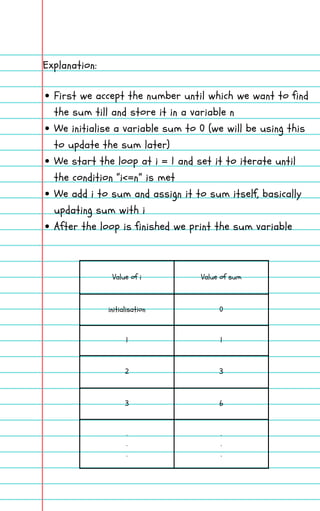 Explanation:
• First we accept the number until which we want to find
the sum till and store it in a variable n
• We initialise a variable sum to 0 (we will be using this
to update the sum later)
• We start the loop at i = 1 and set it to iterate until
the condition "i<=n" is met
• We add i to sum and assign it to sum itself, basically
updating sum with i
• After the loop is finished we print the sum variable
Value of i Value of sum
initialisation 0
1 1
2 3
3 6
. .
. .
. .